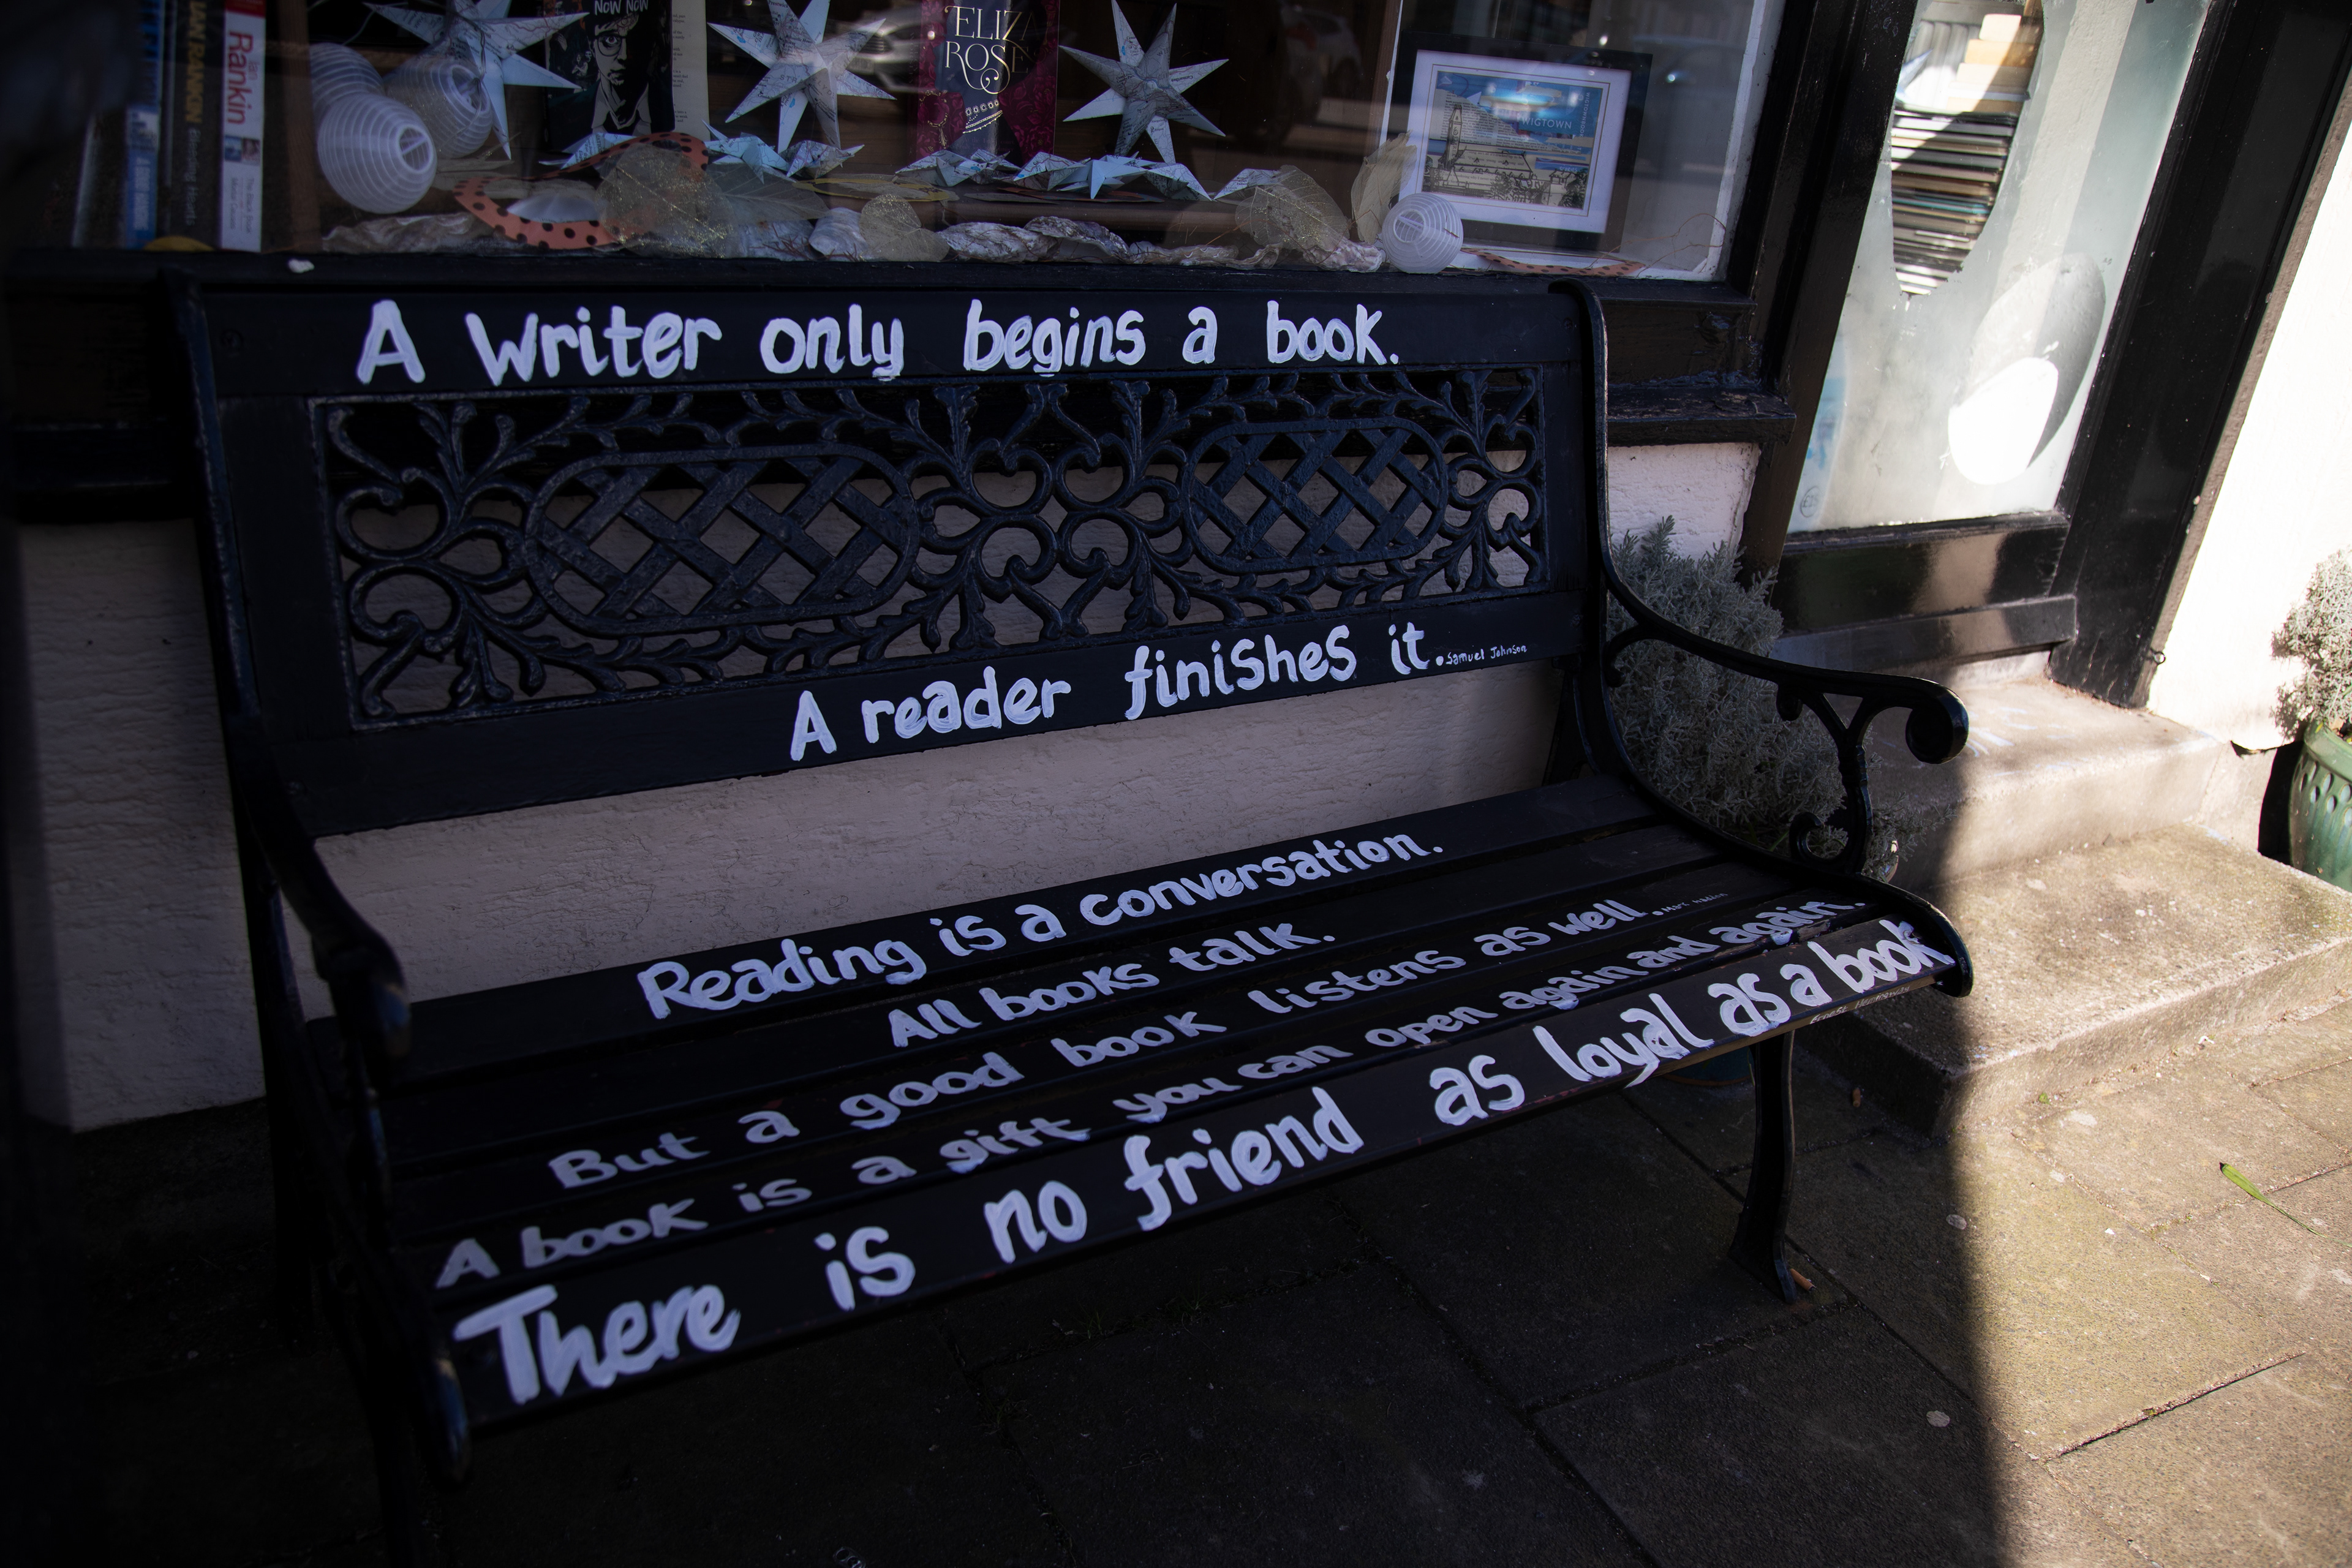 NOW NOW
ELIZA
ROSE
IAN RANKIN
Ian
Rankin
WIGTOWN
A writer only begins a book.
A reader finishes it. Samuel Johnson
Reading is a conversation.
All books talk.
But a good book listens as well.
A book is a gift you can open again and again.
There is no friend as loyal as a book
Ernest Hemingway